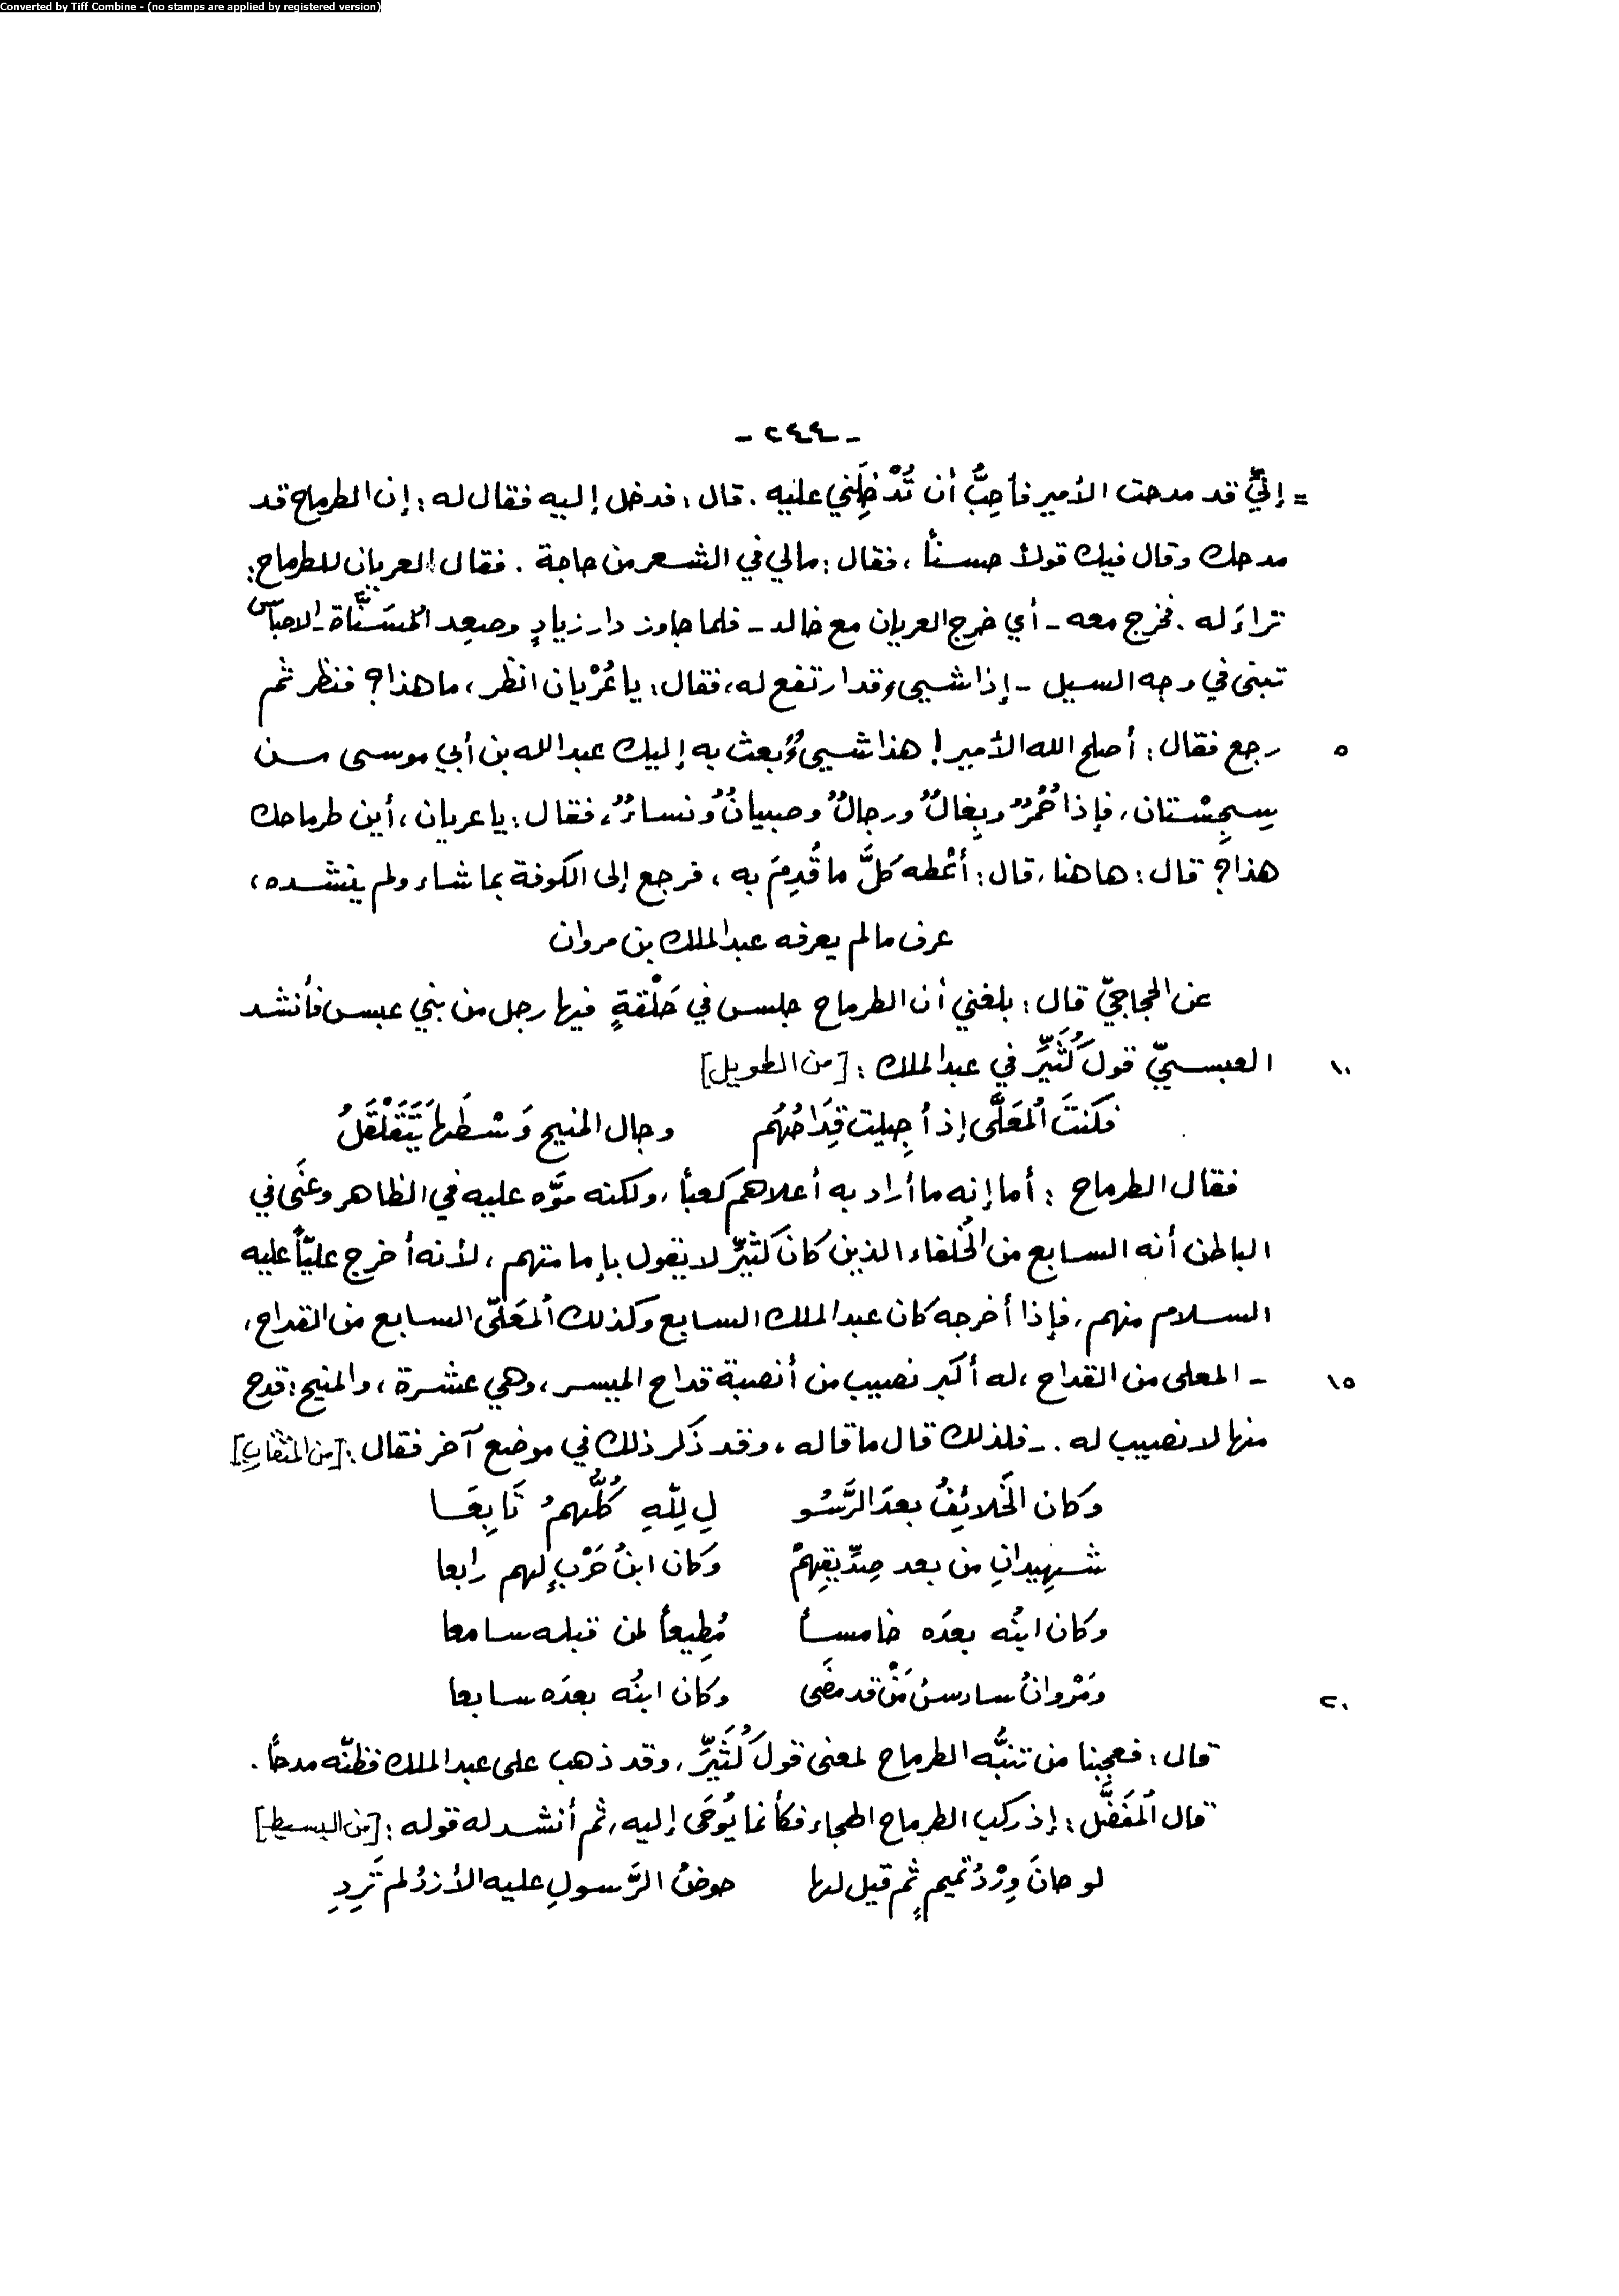 Converted by Tiff Combine - (no stamps are applied by registered version)
- ٢٤٤ -
= إنّي قد مدحت الأمير فأحِبُّ أن تُدْخِلَني عليه . قال : فدخل إليه فقال له : إن الطرماح قد
مدحك وقال فيك قولاً حسناً ، فقال : مالي في الشعر من حاجة . فقال العريان للطرماح :
تراءَ له . فخرج معه - أي خرج العريان مع خالد - فلما جاوز دار زيادٍ وصعِد المُسَنَّاة - الاحباس
تبنى في وجه السيل - إذا شيىء قد ارتفع له ، فقال : يا عُرْيان انظر ، ما هذا ؟ فنظر ثم
٥ رجع فقال : أصلح الله الأمير ! هذا شيىءٌ بعث به إليك عبد الله بن أبي موسى من
سِجِسْتان ، فإذا حُمُرٌ وبِغالٌ ورجالٌ وصبيانٌ ونساءٌ ، فقال : يا عريان ، أين طرماحك
هذا ؟ قال : هاهنا ، قال : أعْطه كلَّ ما قُدِمَ به ، فرجع إلى الكوفة بما شاء ولم ينشده ،
عرف مالم يعرفه عبد الملك بن مروان
عن الحجاجيّ قال : بلغني أن الطرماح جلس في حَلْقةٍ فيها رجل من بني عبس فأنشد
١٠ العبسيّ قولَ كُثَيِّرٍ في عبد الملك : [من الطويل]
فكنتَ المُعَلَّى إذ أُجِيلت قِدَاحُهُم وجال المنيح وَسْطَها يَتَقَلْقَلُ
فقال الطرماح : أما إنه ما أراد به أعلاهم كعباً ، ولكنه موَّه عليه في الظاهر وعَنَى في
الباطن أنه السابع من الخُلفاء الذين كان كثيِّر لا يقول بإمامتهم ، لأنه أخرج عليّاً عليه
السلام منهم ، فإذا أخرجه كان عبد الملك السابع وكذلك المُعَلّى السابع من القداح ،
١٥ - المعلى من القداح ، له أكبر نصيب من أنصبة قداح الميسر ، وهي عشرة ، والمنيح : قدح
منها لا نصيب له . - فلذلك قال ما قاله ، وقد ذَكر ذلك في موضع آخر فقال : [من المتقارب]
وكان الخَلائِفُ بعدَ الرَّسُو لِ لِلّهِ كُلُّهمُ تَابِعَا
شهِيدانِ من بعد صِدِّيقِهِمْ وكان ابنُ حَرْبٍ لهم رابعا
وكان ابنُه بعدَه خامساً مُطِيعاً لمن قبله سامعا
٢٠ ومَرْوانُ سادسُ مَنْ قد مضَى وكان ابنُه بعدَه سابعا
قال : فعجبنا من تنبُّه الطرماح لمعنى قولَ كُثَيِّرٍ ، وقد ذهب على عبد الملك فظنّه مدحاً .
قال المُفَضَّل : إذ ركب الطرماح الهجاء فكأنما يُوحَى إليه ، ثم أنشد له قوله : [من البسيط]
لو حانَ وِرْدُ تميمٍ ثم قيل لها حوضُ الرَّسولِ عليه الأزدُ لم تَرِدِ